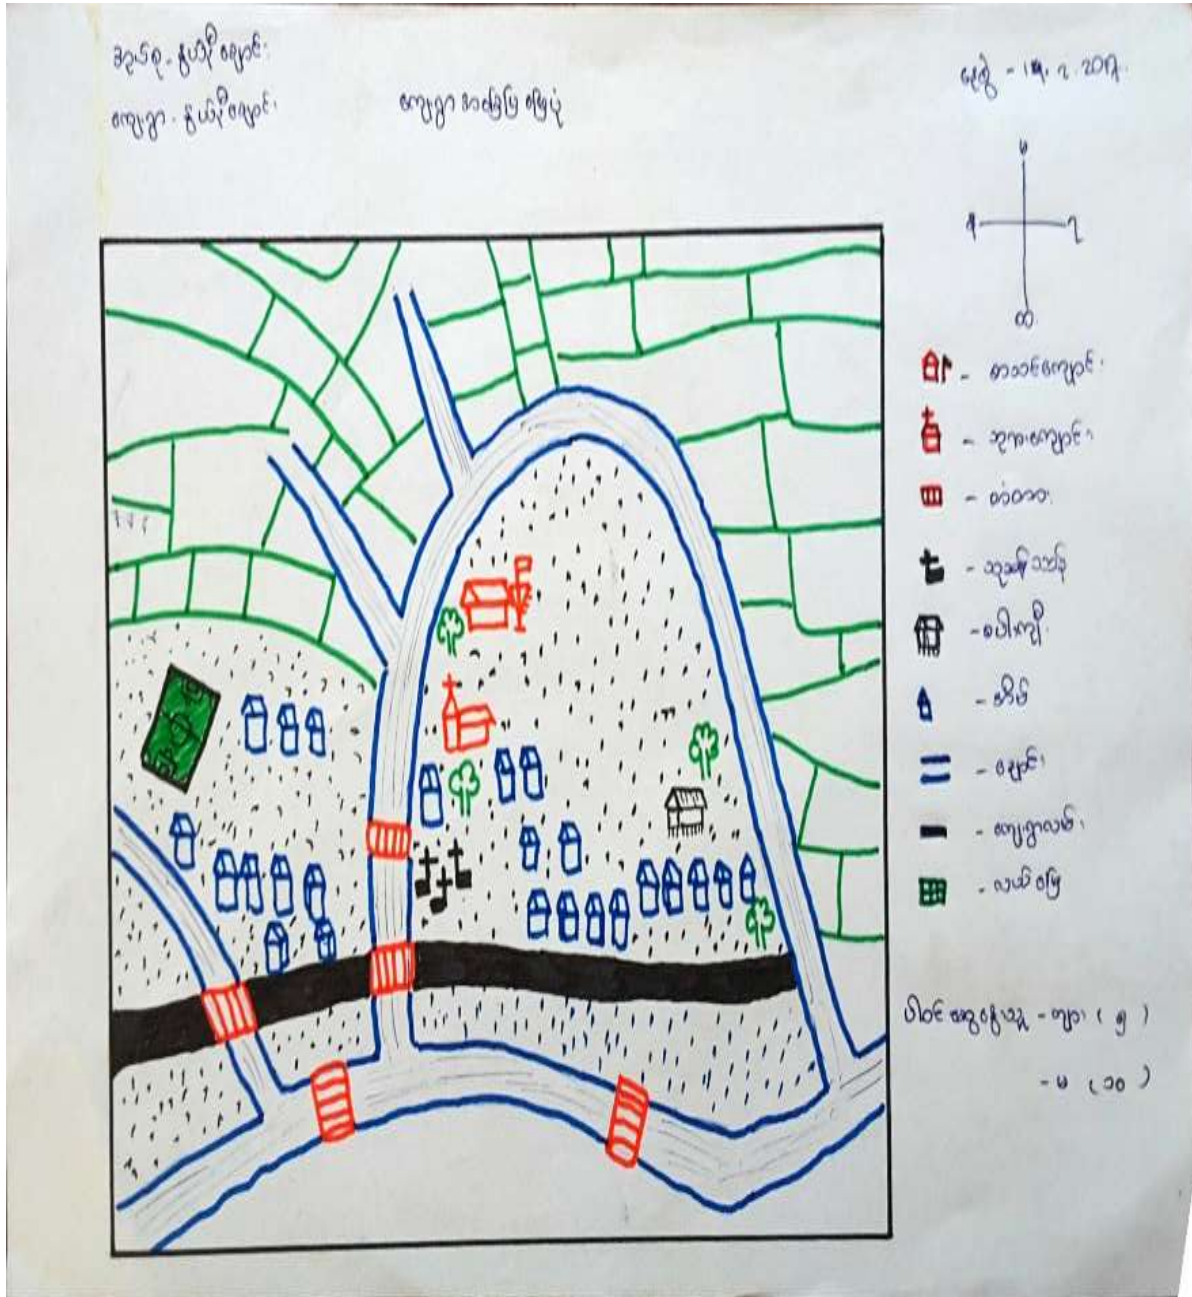 အုပ်စု - နွယ်နီချောင်း
ကျေးရွာ - နွယ်နီချောင်း
ကျေးရွာအခြေပြမြေပုံ
နေ့စွဲ -
မ
တ
- စာသင်ကျောင်း
- ဘုရားကျောင်း
- တံတား
- စပါးကျီ
- အိမ်
- ချောင်း
- ကျေးရွာလမ်း
- လယ်မြေ
ပါဝင်ဆွေးနွေးသူ - ကျား ( ၅ )
- မ ( ၁၀ )